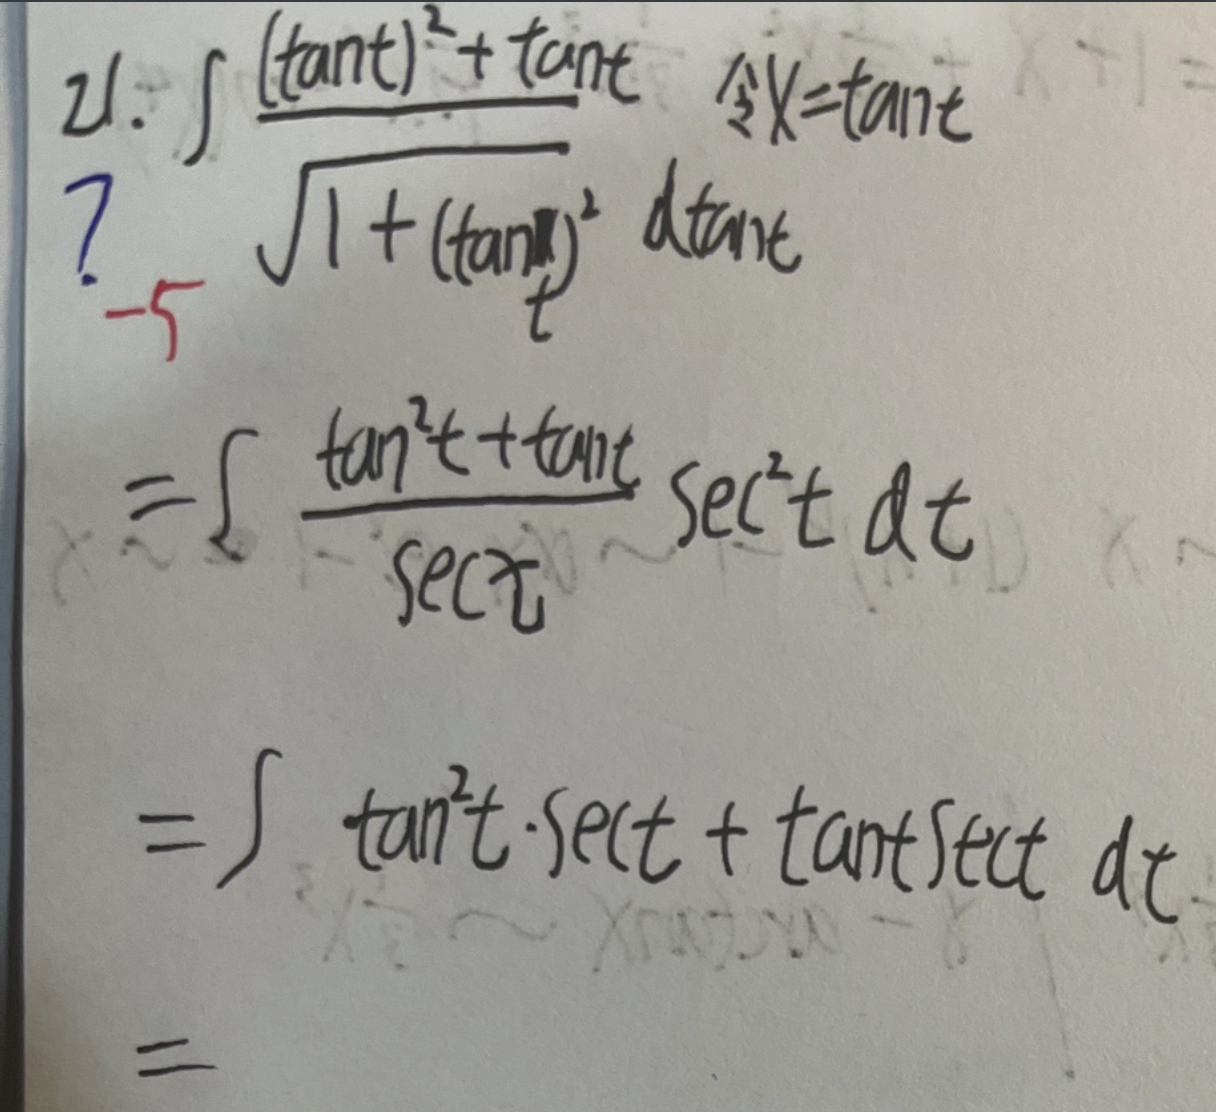 21. ∫ (tant)²+tant / √1+(tant)² dtant 令x=tant
?
-5
=∫ tan²t+tant / sect sec²t dt
=∫ tan²t·sect + tant sect dt
=